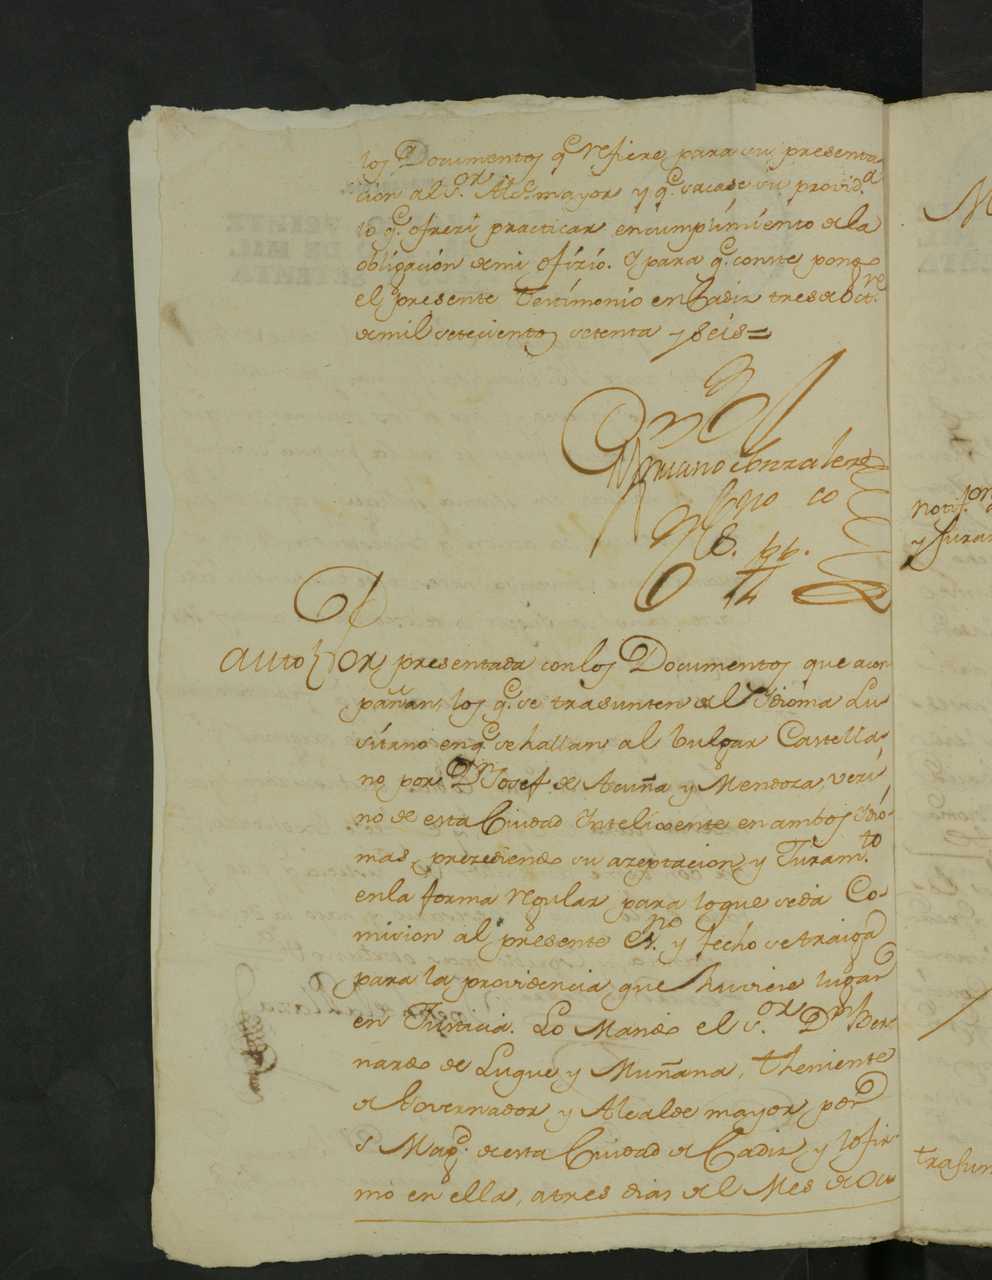 los Documentos q.e refiere, para su presenta-
cion al S.or Alc.e mayor y q.e sacase su provid.a
lo q.e ofreci practicar en cumplimiento de la
obligación de mi ofizio. Y para q.e conste pongo
el presente testimonio en Cadiz tres de Oct.re
de mil setecientos setenta y seis =
Mariano Gonzalez
S. pp.co
Auto Por presentada con los Documentos que acom-
pañan, los q.e se trasunten del Idioma Lu-
sitano en q.e se hallan al bulgar Castella-
no por D.n Josef de Acuña y Mendoza, veci-
no de esta Ciudad Inteligente en ambos Idio-
mas, precediendo su azeptacion y Juram.to
en la forma regular para lo que se da Co-
mision al presente Es.no y fecho se traiga
para la providencia que huviere lugar
en Justicia. Lo Mando el S.or D.n Ber-
nardo de Luque y Muñana, theniente
de Governador y Alcalde mayor por
S. Mag.d de esta Ciudad de Cadiz, y lo fir-
mó en ella, a tres dias del Mes de Oc-
Notif.on
y Juram
trasun